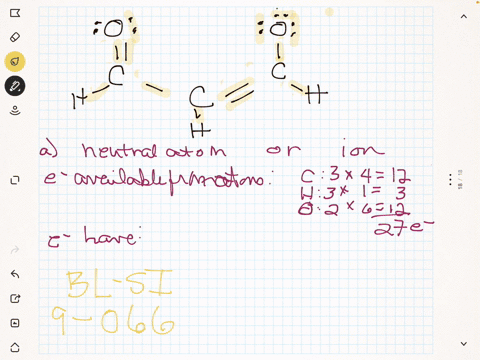 O O
C C
H C H
H
a) neutral atom or ion
e⁻ available from atoms: C: 3 × 4 = 12
H: 3 × 1 = 3
O: 2 × 6 = 12
27 e⁻
e⁻ have:
BL-SI
9-066